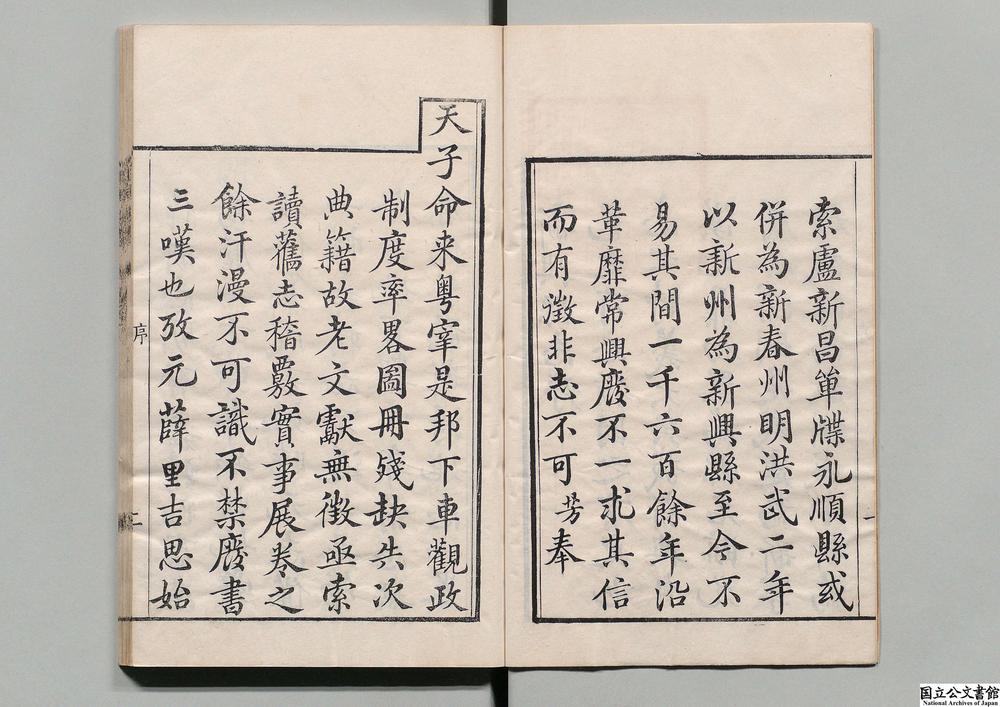 索盧新昌單牒永順縣或
併為新春州明洪武二年
以新州為新興縣至今不
易其間一千六百餘年沿
革靡常興廢不一求其信
而有徵非志不可芳奉
一
天子命来粤宰是邦下車觀政
制度率畧圖冊殘缺失次
典籍故老文獻無徵亟索
讀舊志稽覈實事展卷之
餘汗漫不可識不禁廢書
三嘆也攷元薛里吉思始
序
二
国立公文書館
National Archives of Japan